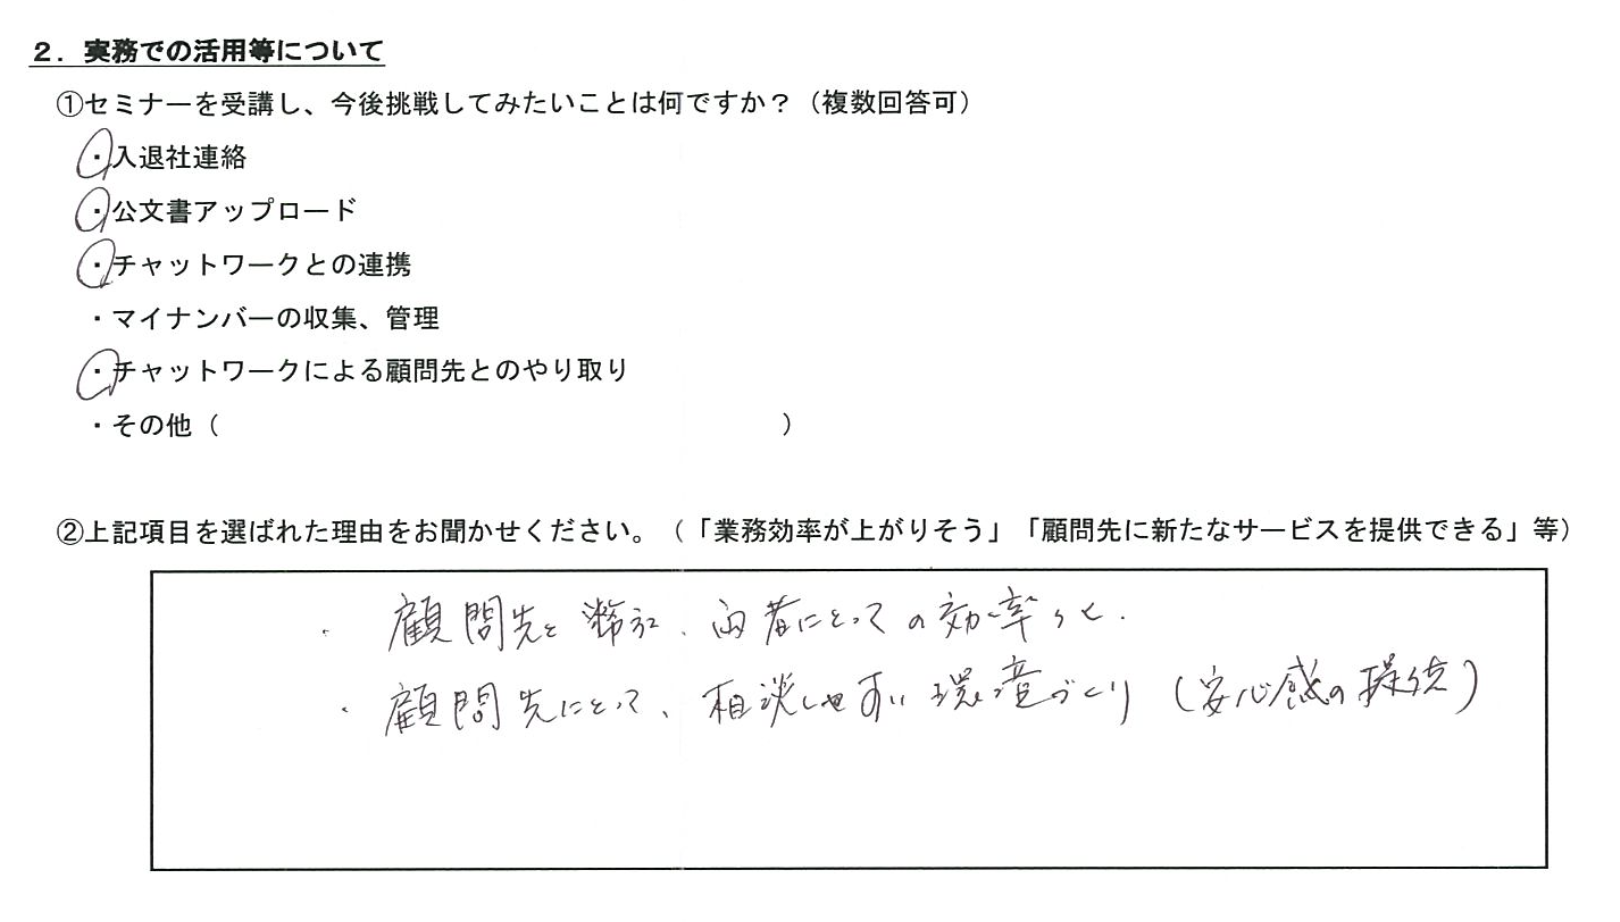 ２．実務での活用等について
①セミナーを受講し、今後挑戦してみたいことは何ですか？（複数回答可）
・入退社連絡
・公文書アップロード
・チャットワークとの連携
・マイナンバーの収集、管理
・チャットワークによる顧問先とのやり取り
・その他（　　　　　　　　　　　　　　　　　　　　）
②上記項目を選ばれた理由をお聞かせください。（「業務効率が上がりそう」「顧問先に新たなサービスを提供できる」等）
・顧問先と弊社、両者にとっての効率化.
・顧問先にとって、相談しやすい環境づくり（安心感の提供）